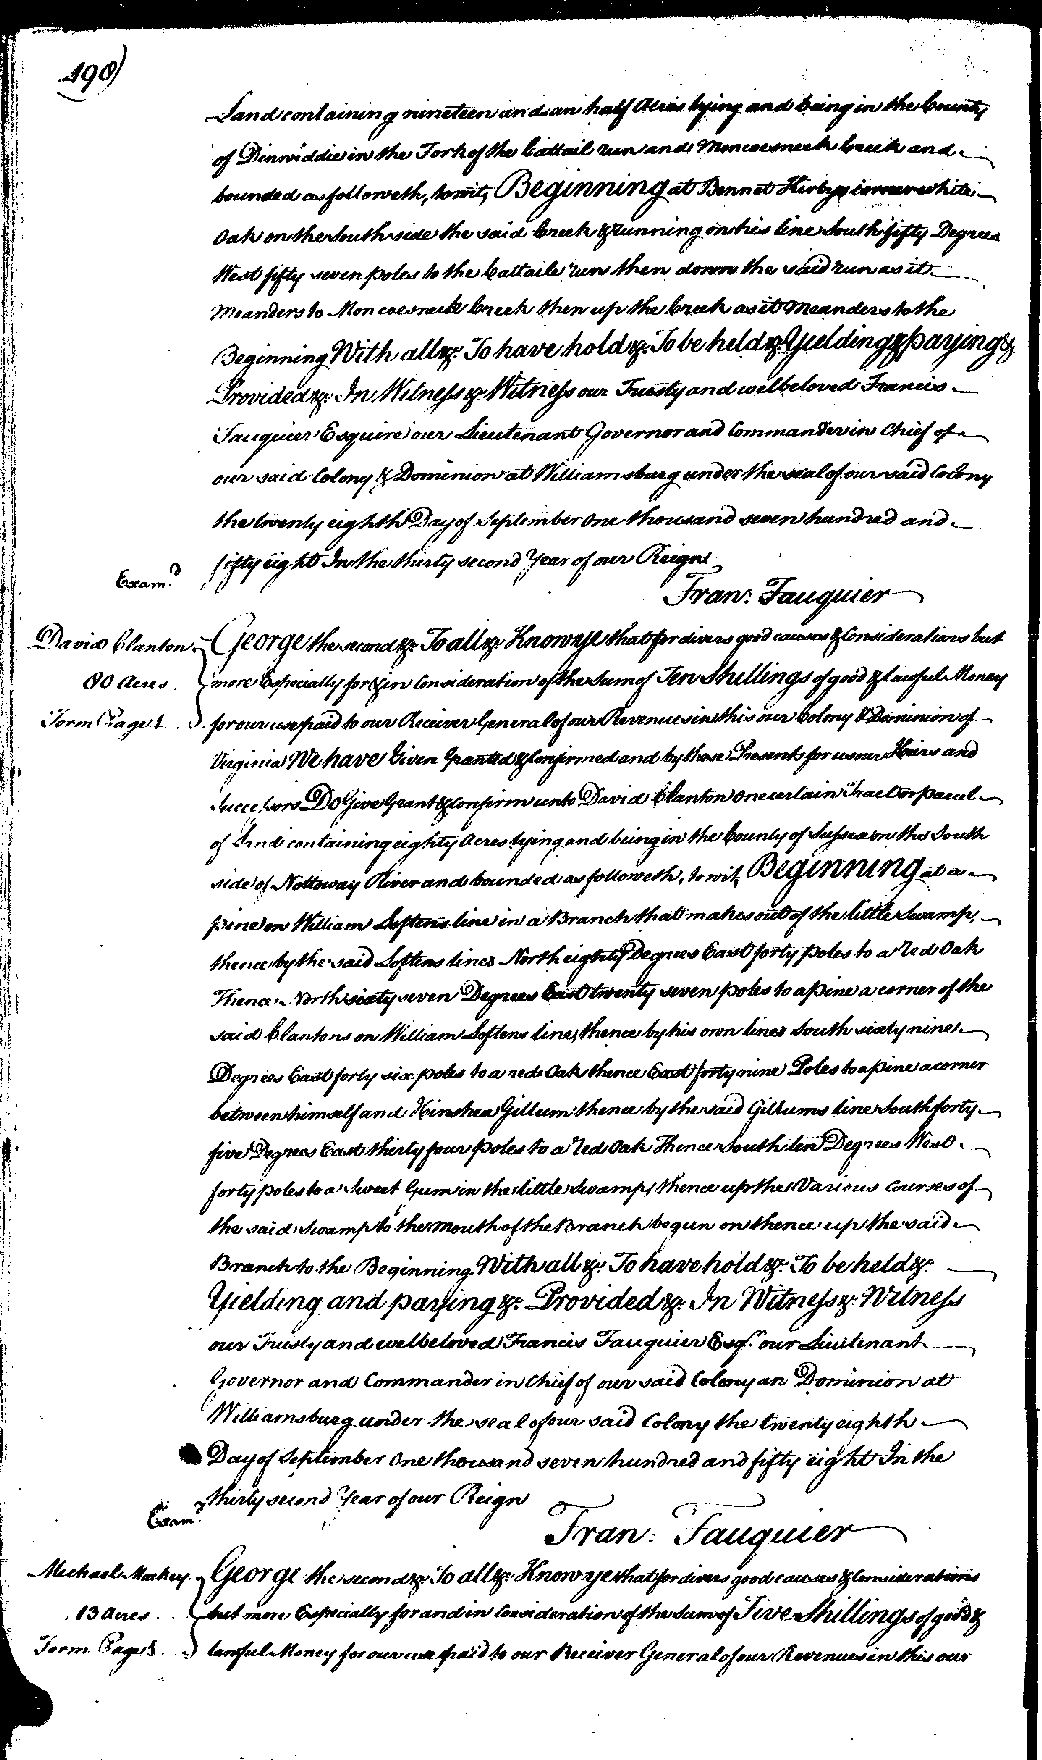 198)
Land containing nineteen and an half Acres lying and being in the County
of Dinwiddie in the Fork of the Cattail run and Moncosneck Creek and
bounded as followeth, to wit, Beginning at Bennet Kirbys corner white
Oak on the South side the said Creek & running on his line South fifty Degrees
West fifty seven poles to the Cattaile run then down the said run as it
Meanders to Moncosneck Creek then up the Creek as it Meanders to the
Beginning With all &c. To have hold &c. To be held &c. Yielding & paying &c
Provided &c. In Witness &c. Witness our Trusty and welbeloved Francis
Fauquier Esquire our Lieutenant Governor and Commander in Chief of
our said Colony & Dominion at Williamsburg under the seal of our said Colony
the twenty eighth Day of September One thousand seven hundred and
fifty eight In the thirty second Year of our Reign
Exam.d
Fran: Fauquier
David Clanton
80 Acres
Form Page 1
George the second &c. To all &c. Know ye that for divers good causes & Considerations but
more Especially for & in Consideration of the Sum of Ten Shillings of good & lawful Money
for our use paid to our Receiver General of our Revenues in this our Colony & Dominion of
Virginia We have Given Granted & Confirmed and by these Presents for us our Heirs and
Successors Do Give Grant & Confirm unto David Clanton one certain Tract or parcel
of Land containing eighty Acres lying and being in the County of Sussex on the South
side of Nottoway River and bounded as followeth, to wit, Beginning at a
pine on William Loftens line in a Branch that makes out of the little Swamp,
thence by the said Loftens lines North eighty Degrees East forty poles to a red Oak
Thence North sixty seven Degrees East twenty seven poles to a pine a corner of the
said Clantons on William Loftens line, thence by his own lines South sixty nine
Degrees East forty six poles to a red Oak thence East forty nine Poles to a pine a corner
between himself and Hinshea Gillum thence by the said Gillums line South forty
five Degrees East thirty four poles to a red Oak Thence South ten Degrees West
forty poles to a Sweet Gum in the little Swamp, thence up the Various courses of
the said Swamp to the mouth of the Branch begun on thence up the said
Branch to the Beginning With all &c. To have hold &c. To be held &c.
Yielding and paying &c. Provided &c. In Witness &c. Witness
our Trusty and welbeloved Francis Fauquier Esqr. our Lieutenant
Governor and Commander in Chief of our said Colony an Dominion at
Williamsburg under the seal of our said Colony the twenty eighth
Day of September One thousand seven hundred and fifty eight In the
thirty second Year of our Reign
Exam.d
Fran: Fauquier
Michael Mackey
13 Acres
Form Page 1
George the second &c. To all &c. Know ye that for divers good causes & Considerations
but more Especially for and in Consideration of the Sum of Five Shillings of good &
lawful Money for our use paid to our Receiver General of our Revenues in this our